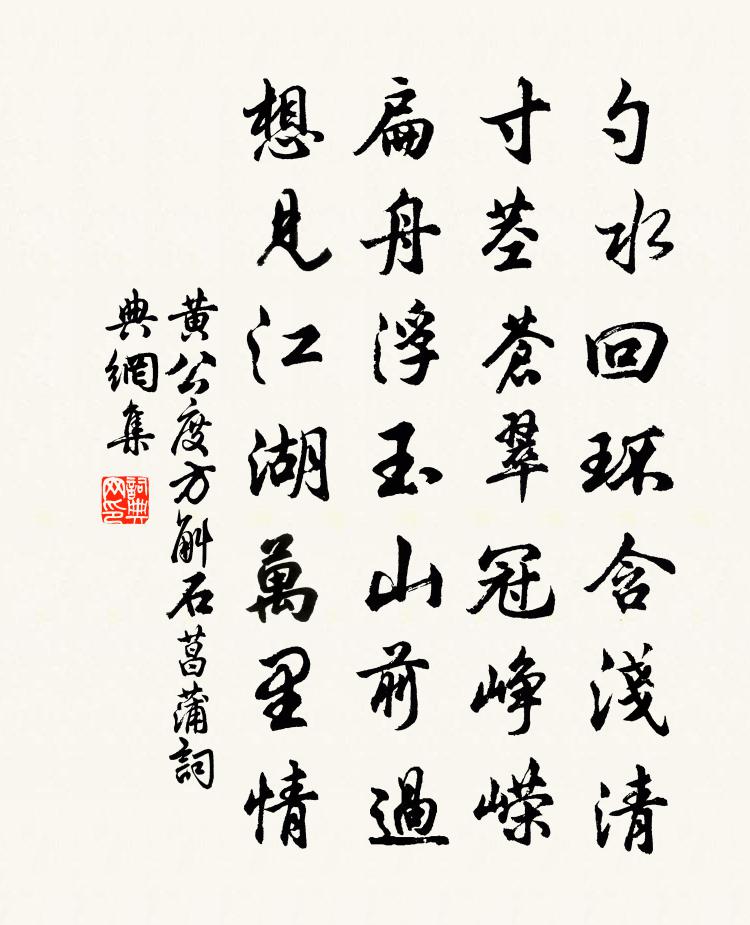 勺水回環含淺清
寸莖蒼翠冠崢嶸
扁舟浮玉山前過
想見江湖萬里情
黄公度方斛石菖蒲詞
典網集
詞典
网印